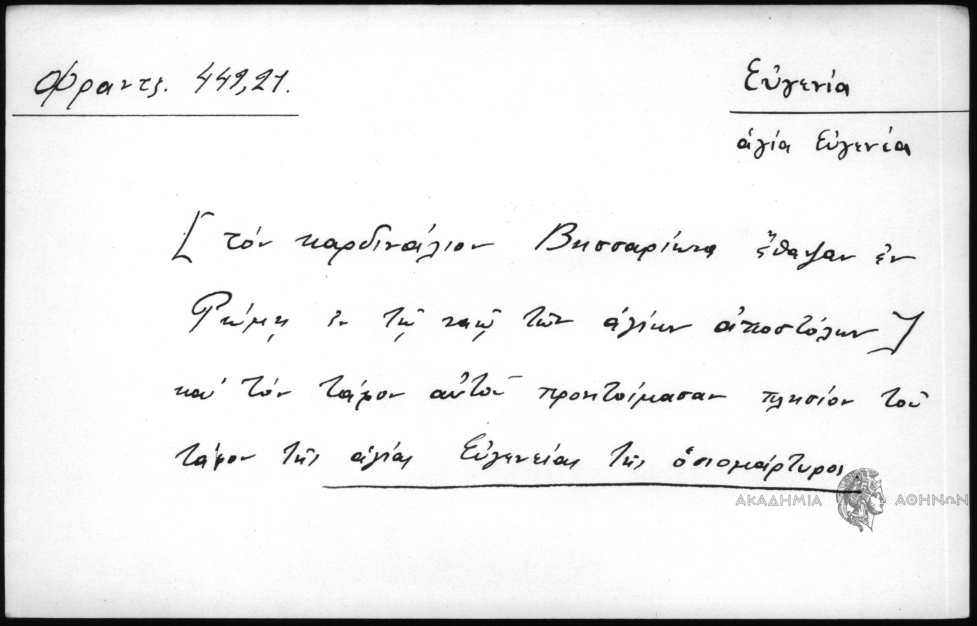 Φραντζ. 449,21.
Εὐγενία
ἁγία Εὐγενία
[τὸν καρδινάλιον Βησσαρίωνα ἔθαψαν ἐν
Ῥώμῃ ἐν τῷ ναῷ τῶν ἁγίων ἀποστόλων]
καὶ τὸν τάφον αὐτοῦ προητοίμασαν πλησίον τοῦ
τάφου τῆς ἁγίας Εὐγενείας τῆς ὁσιομάρτυρος
ΑΚΑΔΗΜΙΑ ΑΘΗΝΩΝ